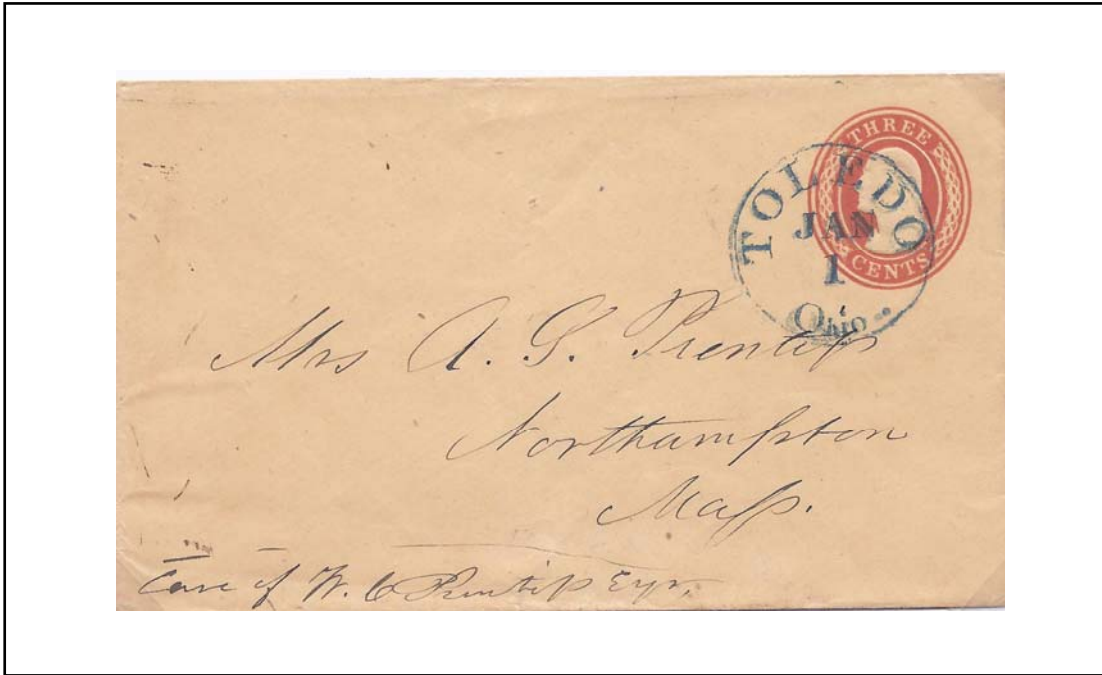 THREE
CENTS
TOLEDO
JAN
1
Ohio
Mrs A. G. Prentiss
Northampton
Mass.
Care of W. C Prentiss Esqr,